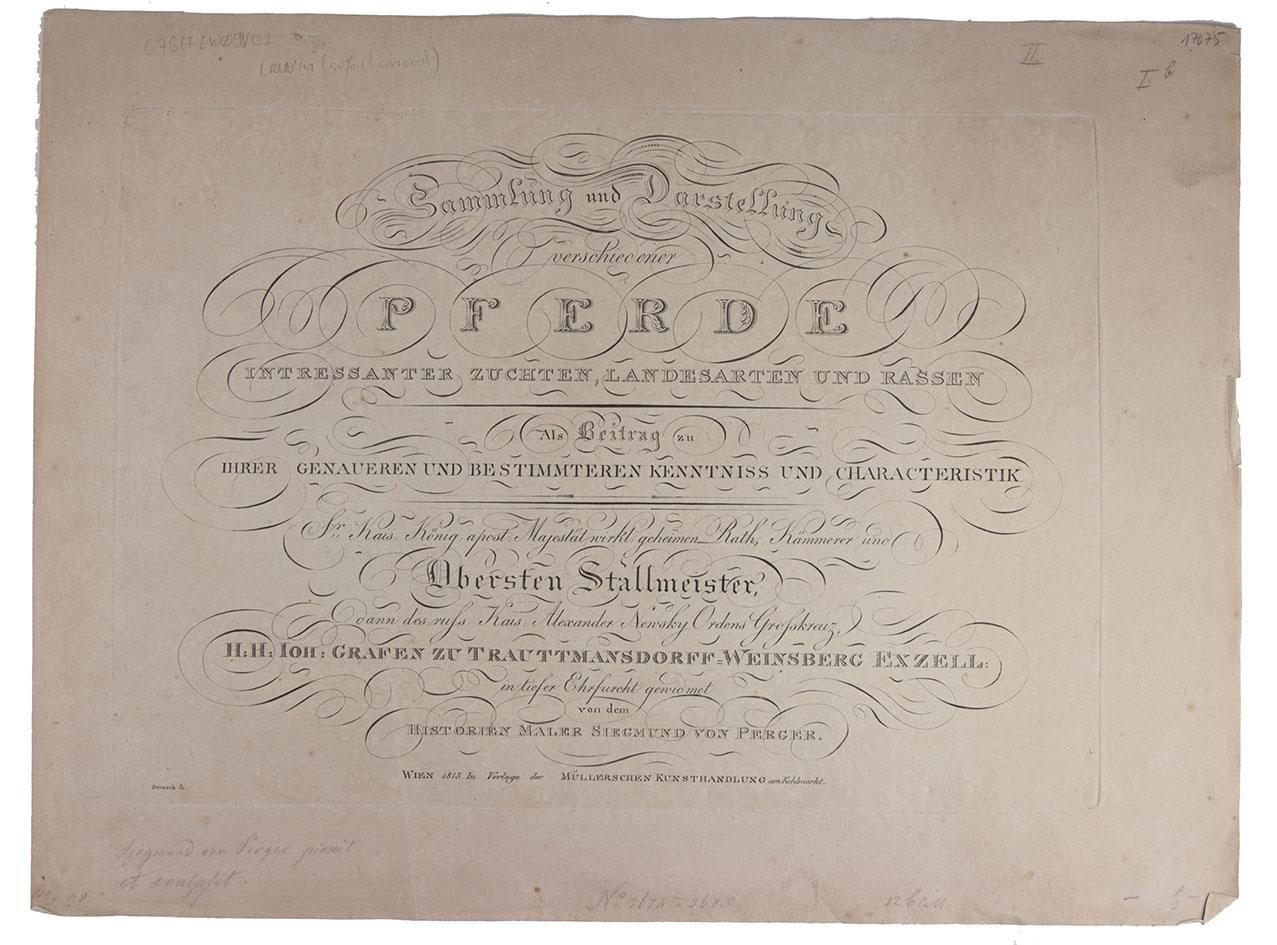 17075
II
I b
Sammlung und Darstellung
verschiedener
PFERDE
INTRESSANTER ZUCHTEN, LANDESARTEN UND RASSEN
Als Beitrag zu
IHRER GENAUEREN UND BESTIMMTEREN KENNTNISS UND CHARACTERISTIK.
Sr. Kais. König. apost. Majestät wirkl. geheimen Rath, Kämmerer und
Obersten Stallmeister,
dann des russ. Kais. Alexander Newsky Ordens Grosskreuz,
H: H: IOH: GRAFEN ZU TRAUTTMANSDORFF=WEINSBERG EXZELL:
in tiefer Ehrfurcht gewidmet
von dem
HISTORIEN MALER SIEGMUND VON PERGER.
WIEN 1815. In Verlage der MÜLLERSCHEN KUNSTHANDLUNG am Kohlmarkt.
Siegmund von Perger pinxit
et sculpsit.